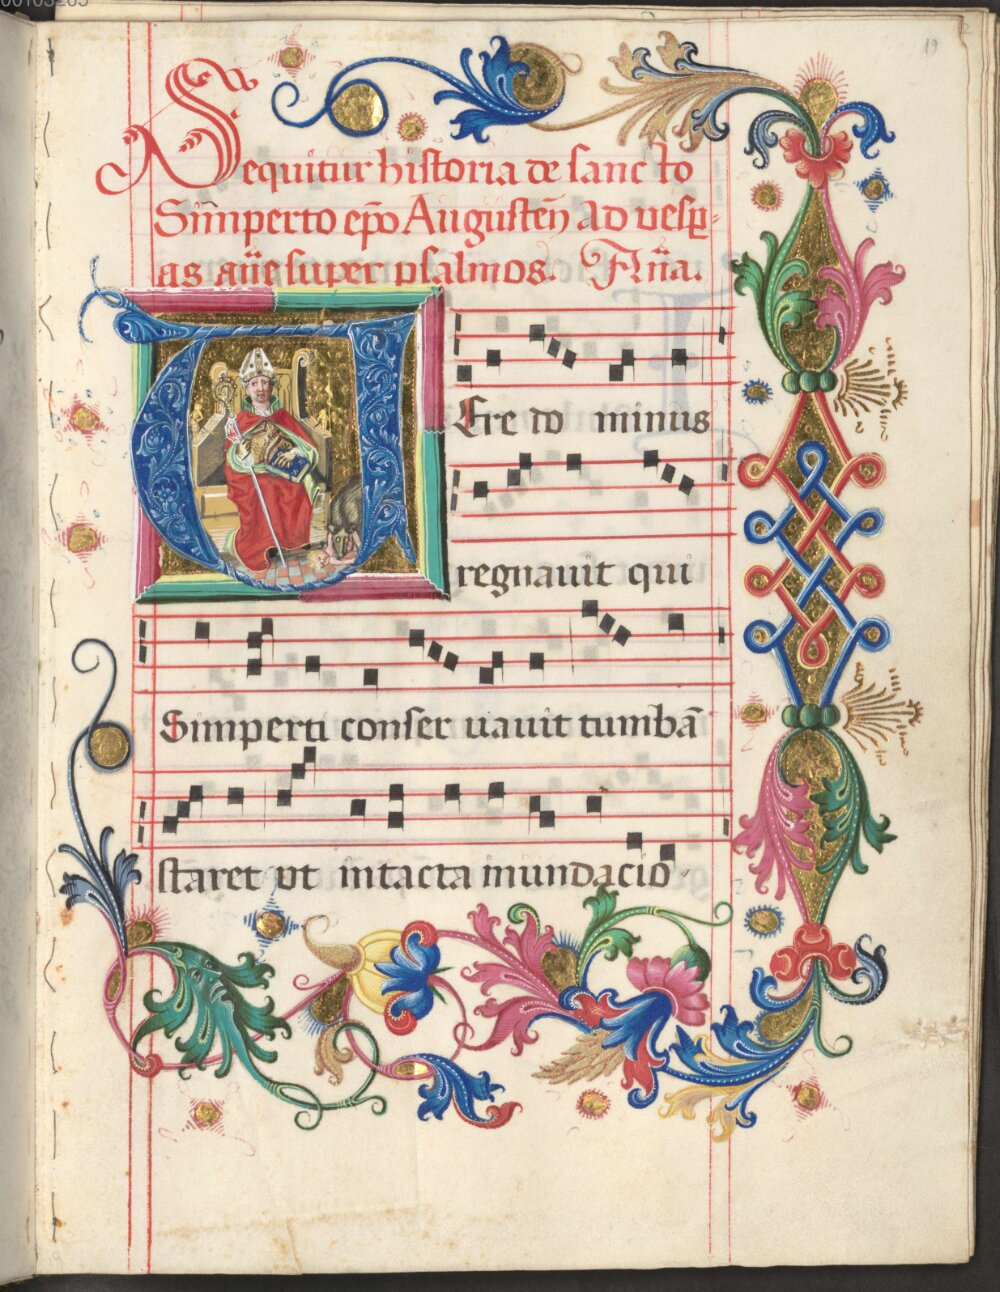 00105265
19
Sequitur historia de sancto
Simperto ep̅o Augusten̅ ad vesp⸗
as an̅e super psalmos. A̅n̅a.
Uere dominus
regnauit qui
Simperti conseruauit tumba̅
staret ut intacta mundacio⸗